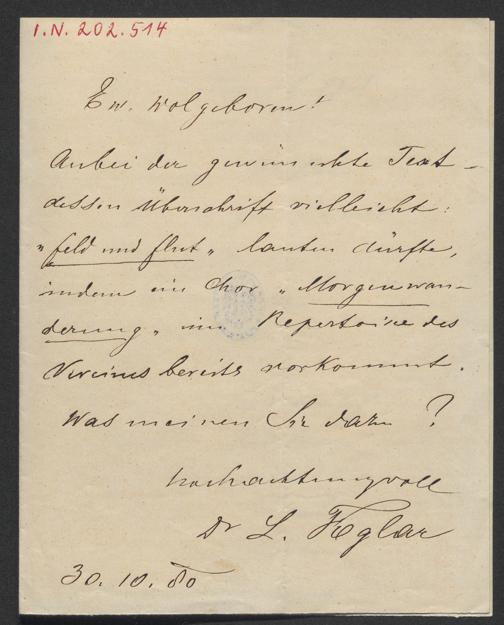 I.N. 202.514
Ew. Wolgeboren!
Anbei der gewünschte Text –
dessen Überschrift vielleicht:
"Feld und Flut" lauten dürfte,
indem ein Chor "Morgenwan-
derung" im Repertoire des
Vereines bereits vorkommt.
Was meinen Sie dazu?
Hochachtungsvoll
Dr L.
30. 10. 80